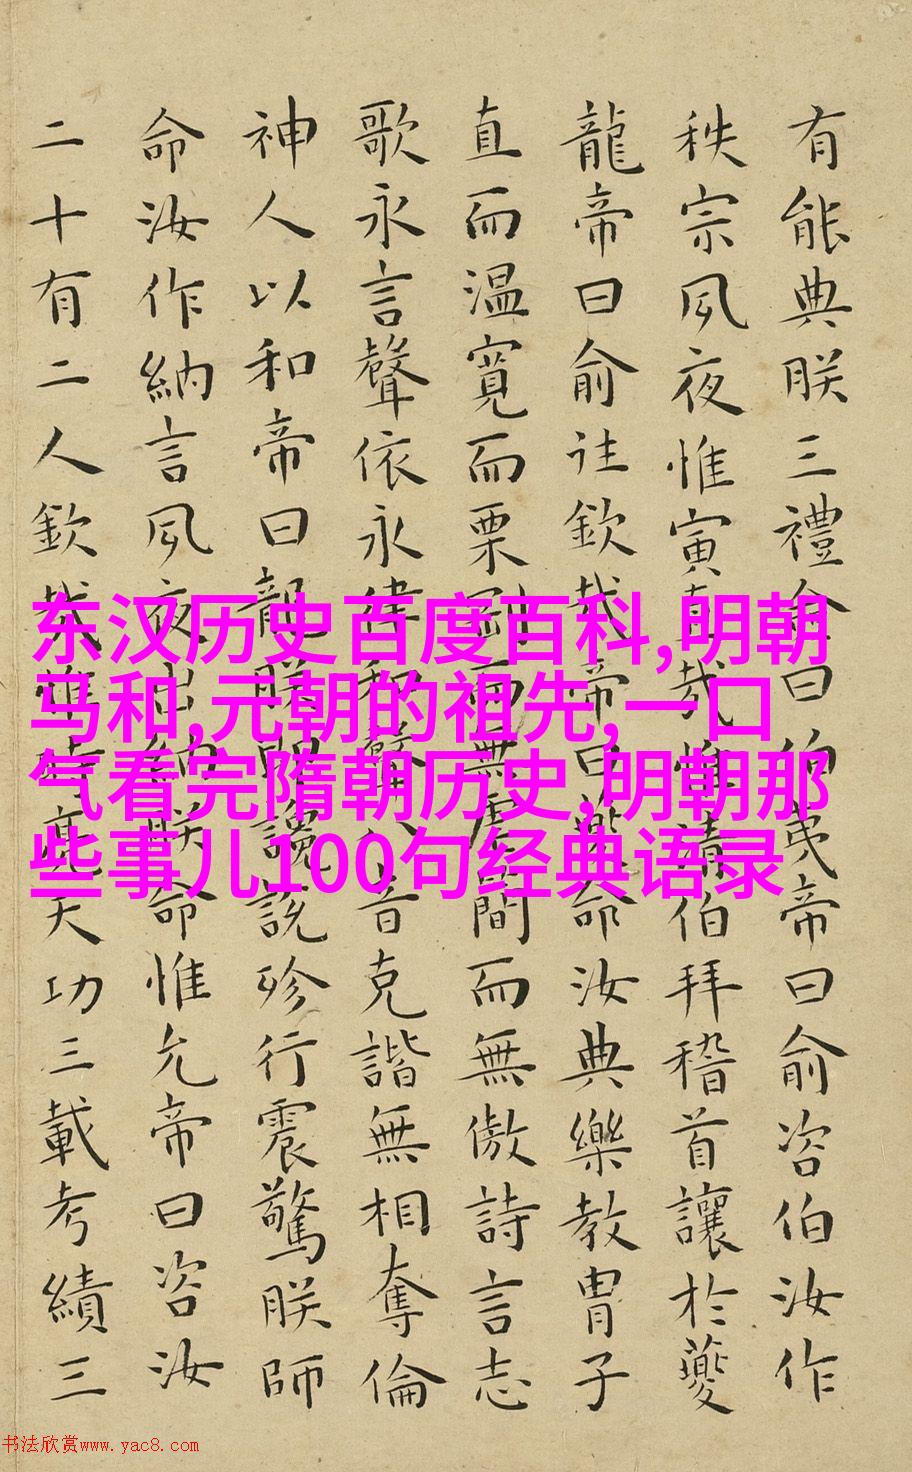 有能典朕三禮僉曰伯夷帝曰俞咨伯汝作
秩宗夙夜惟寅直哉惟清伯拜稽首讓於夔
龍帝曰俞往欽哉帝曰夔命汝典樂教胄子
直而温寛而栗剛而無虐簡而無傲詩言志
歌永言聲依永律和聲八音克諧無相奪倫
神人以和帝曰龍朕堲讒説殄行震驚朕師
命汝作納言夙夜出納朕命惟允帝曰咨汝
二十有二人欽哉惟時亮天功三載考績三
东汉历史百度百科,明朝
马和,元朝的祖先,一口
气看完隋朝历史,明朝那
些事儿100句经典语录
书法欣赏www.yac8.com